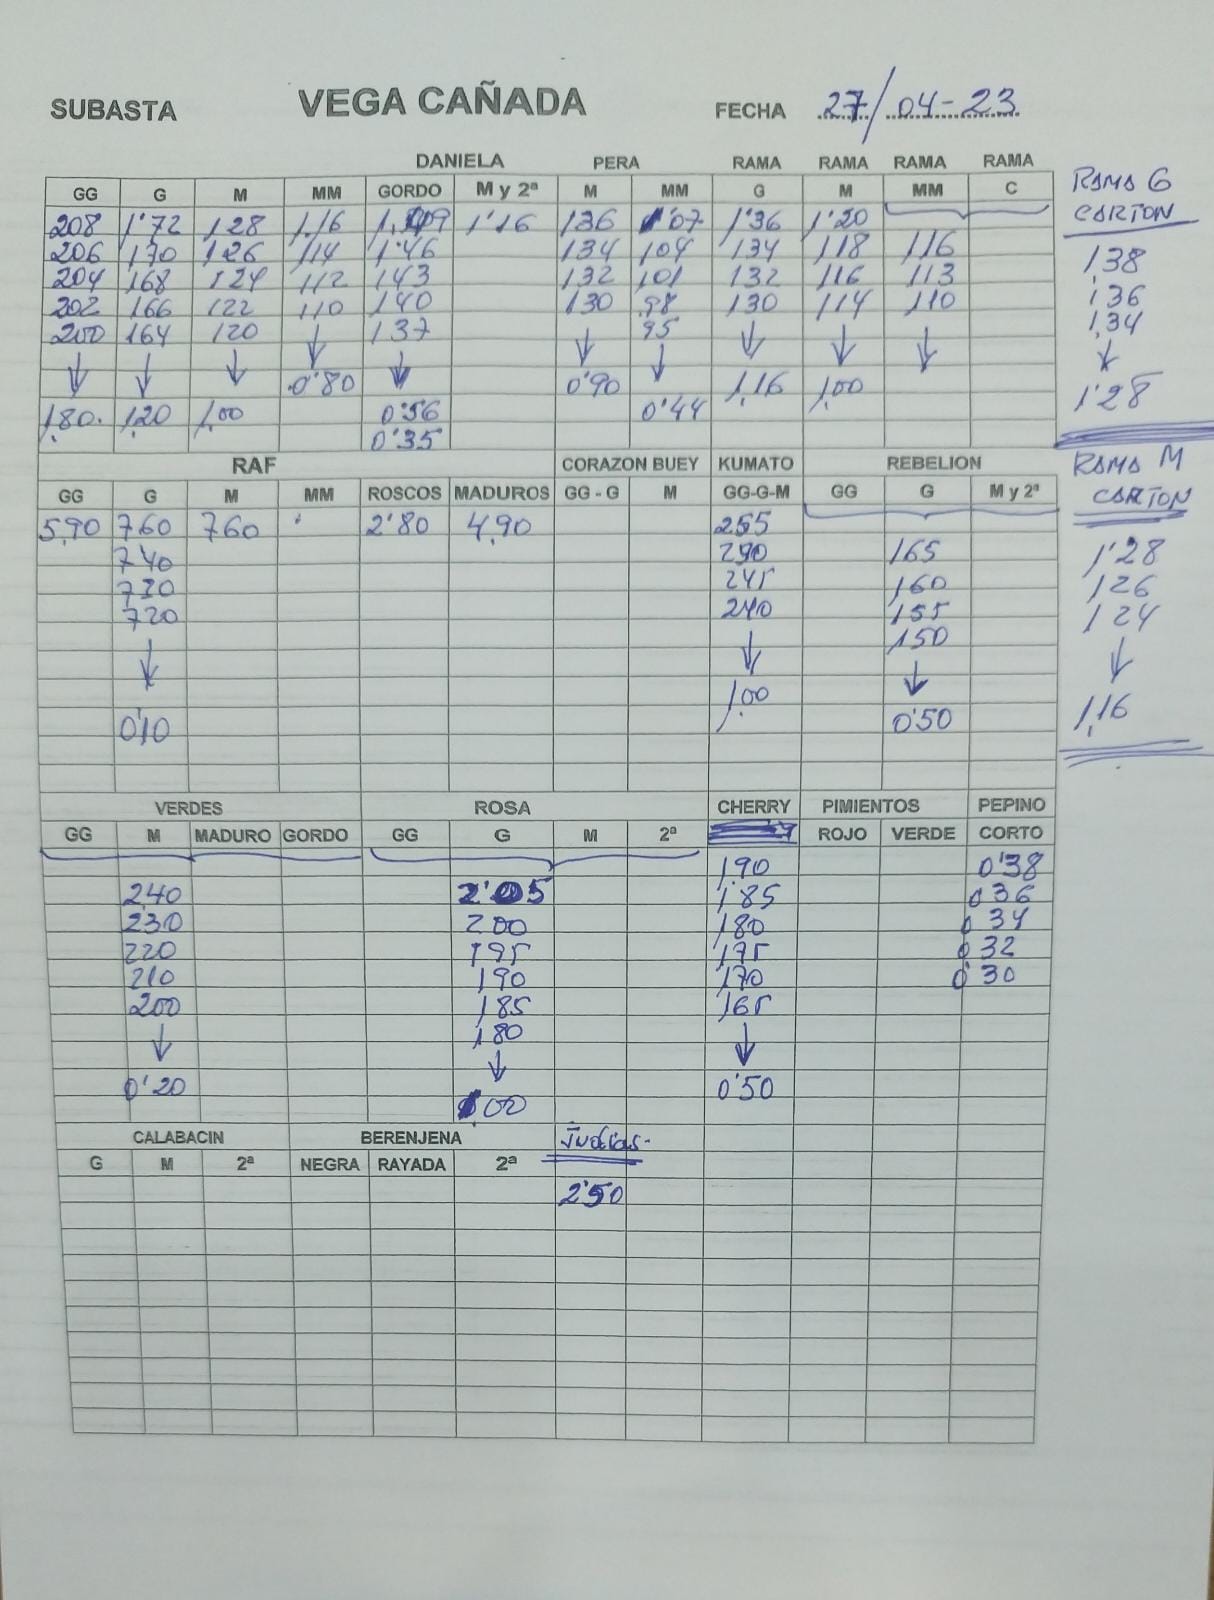 SUBASTA VEGA CAÑADA FECHA 27/04-23
DANIELA PERA RAMA RAMA RAMA RAMA
GG G M MM GORDO M y 2ª M MM G M MM C
208 1'72 128 1,16 1'16 136 1'07 1'36 1'20
206 170 126 114 1'46 134 104 134 118 116
204 168 124 112 143 132 101 132 116 113
202 166 122 110 140 130 98 130 114 110
200 164 120 137 95
0'80 0'90 1,16 1,00
1,80. 1,20 1,00 0'56 0'44
0'35
RAMA G
CARTON
138
136
1,34
1'28
RAF CORAZON BUEY KUMATO REBELION
GG G M MM ROSCOS MADUROS GG - G M GG-G-M GG G M y 2ª
5,90 760 760 2'80 4,90 255
740 165
730 245 160
720 240 155
150
1,00
0'10 0'50
RAMA M
CARTON
1'28
126
124
1,16
VERDES ROSA CHERRY PIMIENTOS PEPINO
GG M MADURO GORDO GG G M 2ª ROJO VERDE CORTO
190 0'38
240 2'05 185 036
230 200 180 034
220 195 175 032
210 190 170 0'30
200 185 165
180
0'20 0'50
00
CALABACIN BERENJENA Judias-
G M 2ª NEGRA RAYADA 2ª
2'50